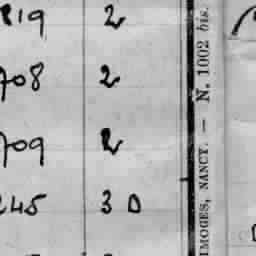 819 2
708 2
709 2
245 3 D
IMOGES, NANCY. — N. 1002 bis.